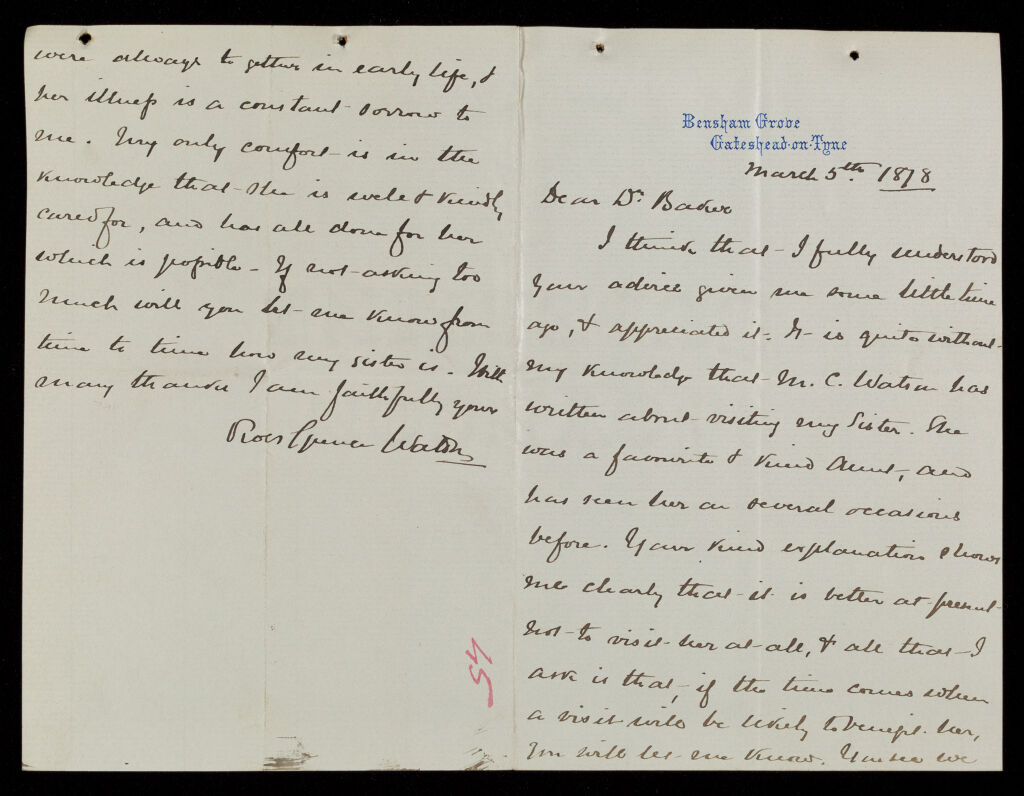 Bensham Grove
Gateshead-on-Tyne
March 5th. 1878
Dear Dr. Baker
I think that I fully understood
your advice given me some little time
ago, & appreciated it. It is quite without
my knowledge that M. C. Watson has
written about visiting my Sister. She
was a favourite & kind Aunt, and
has seen her on several occasions
before. Your kind explanation shows
me clearly that it is better at present
not to visit her at all, & all that I
ask is that, if the time comes when
a visit will be likely to benefit her,
you will let me know. You see we
were always to gether in early life, &
her illness is a constant sorrow to
me. My only comfort is in the
knowledge that she is well & kindly
cared for, and has all done for her
which is possible - If not asking too
much will you let me know from
time to time how my sister is. With
many thanks I am faithfully yours
Robt Spence Watson
54